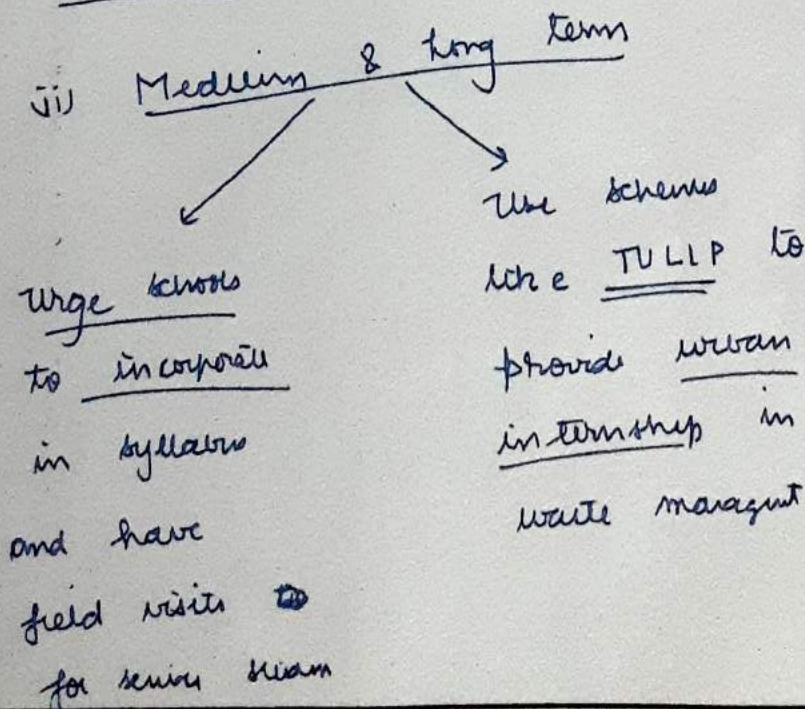 ii) Medium & Long term
Urge schools
to incorporate
in syllabus
and have
field visits
for senior
Use schemes
like TULIP to
provide urban
internship in
waste managmt